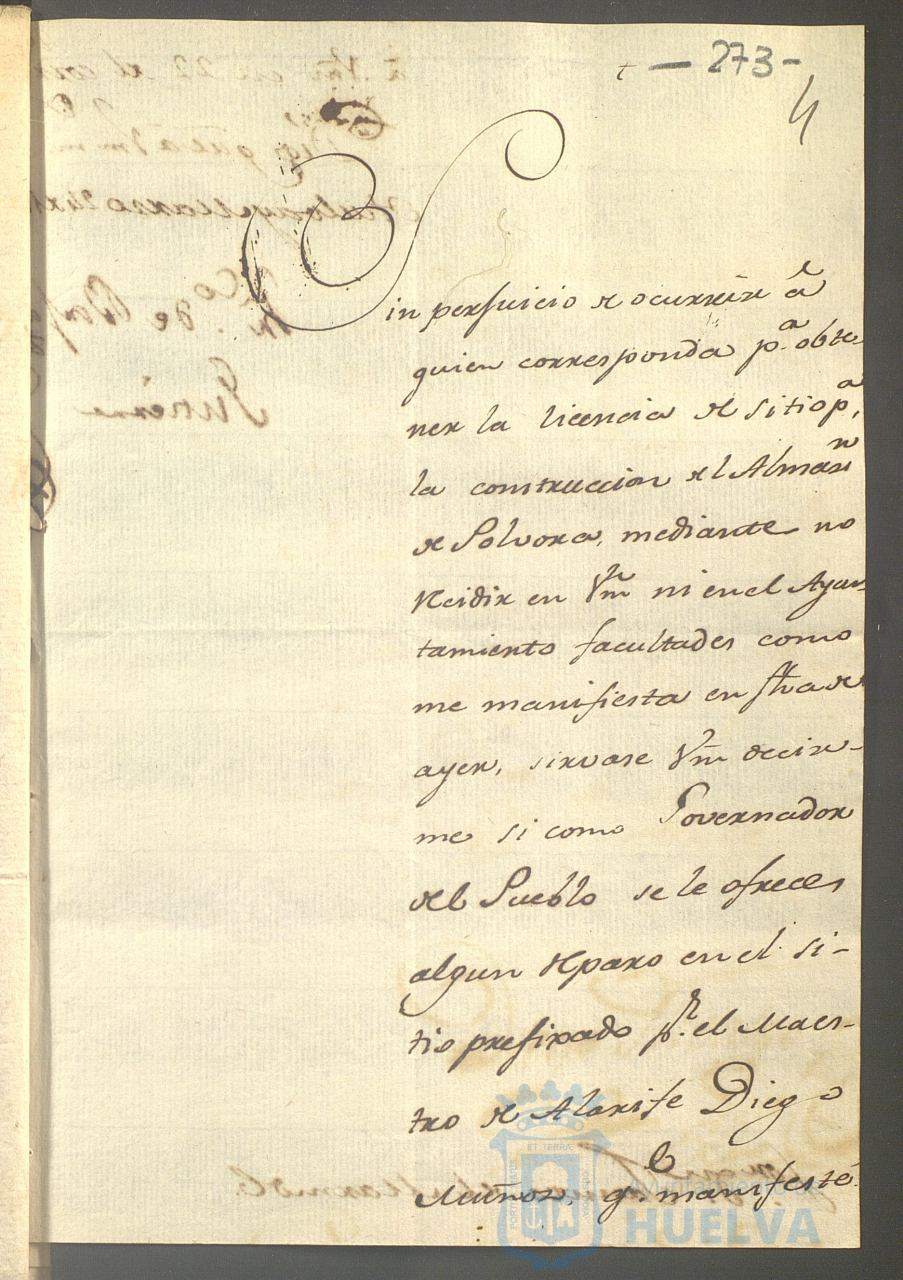 t — 273 -
4
Sin perjuicio de ocurrir á
quien corresponda p.a obte
ner la licencia del sitio p.a
la construccion del Almazn
de Polvora, mediante no
Recidir en Vm ni en el Ayun
tamiento facultades como
me manifiesta en fha de
ayer, sirvase Vm decir-
me si como Governador
del Pueblo se le ofrece
algun Reparo en el si-
tio prefixado pr. el Maes-
tro de Alarife Diego
Muñoz, q.e manifesté
ET TERRÆ
HUELVA